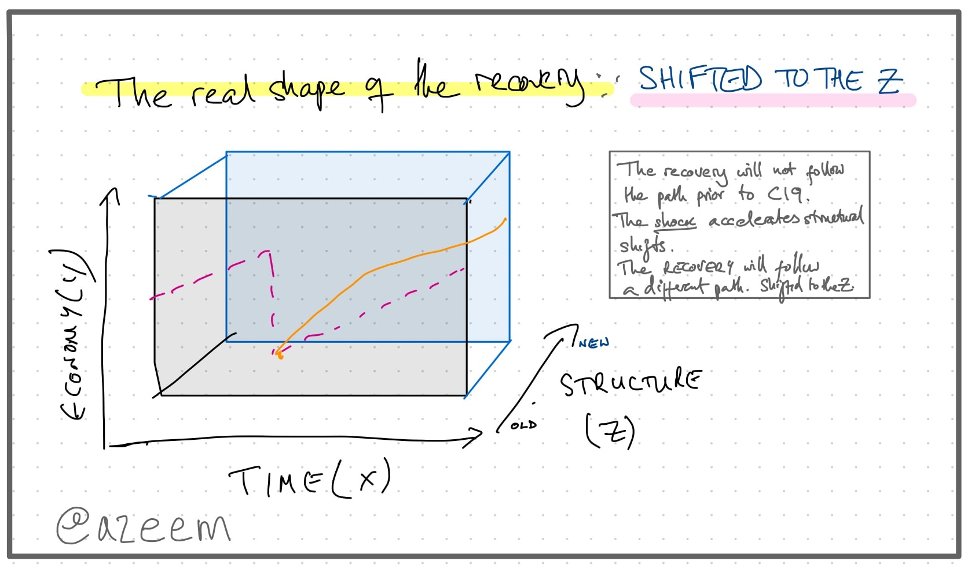 The real shape of the recovery: SHIFTED TO THE Z
The recovery will not follow
the path prior to C19.
The shock accelerates structural
shifts.
The RECOVERY will follow
a different path. Shifted to the Z.
ECONOMY (y)
NEW
OLD
STRUCTURE
(Z)
TIME (X)
@azeem